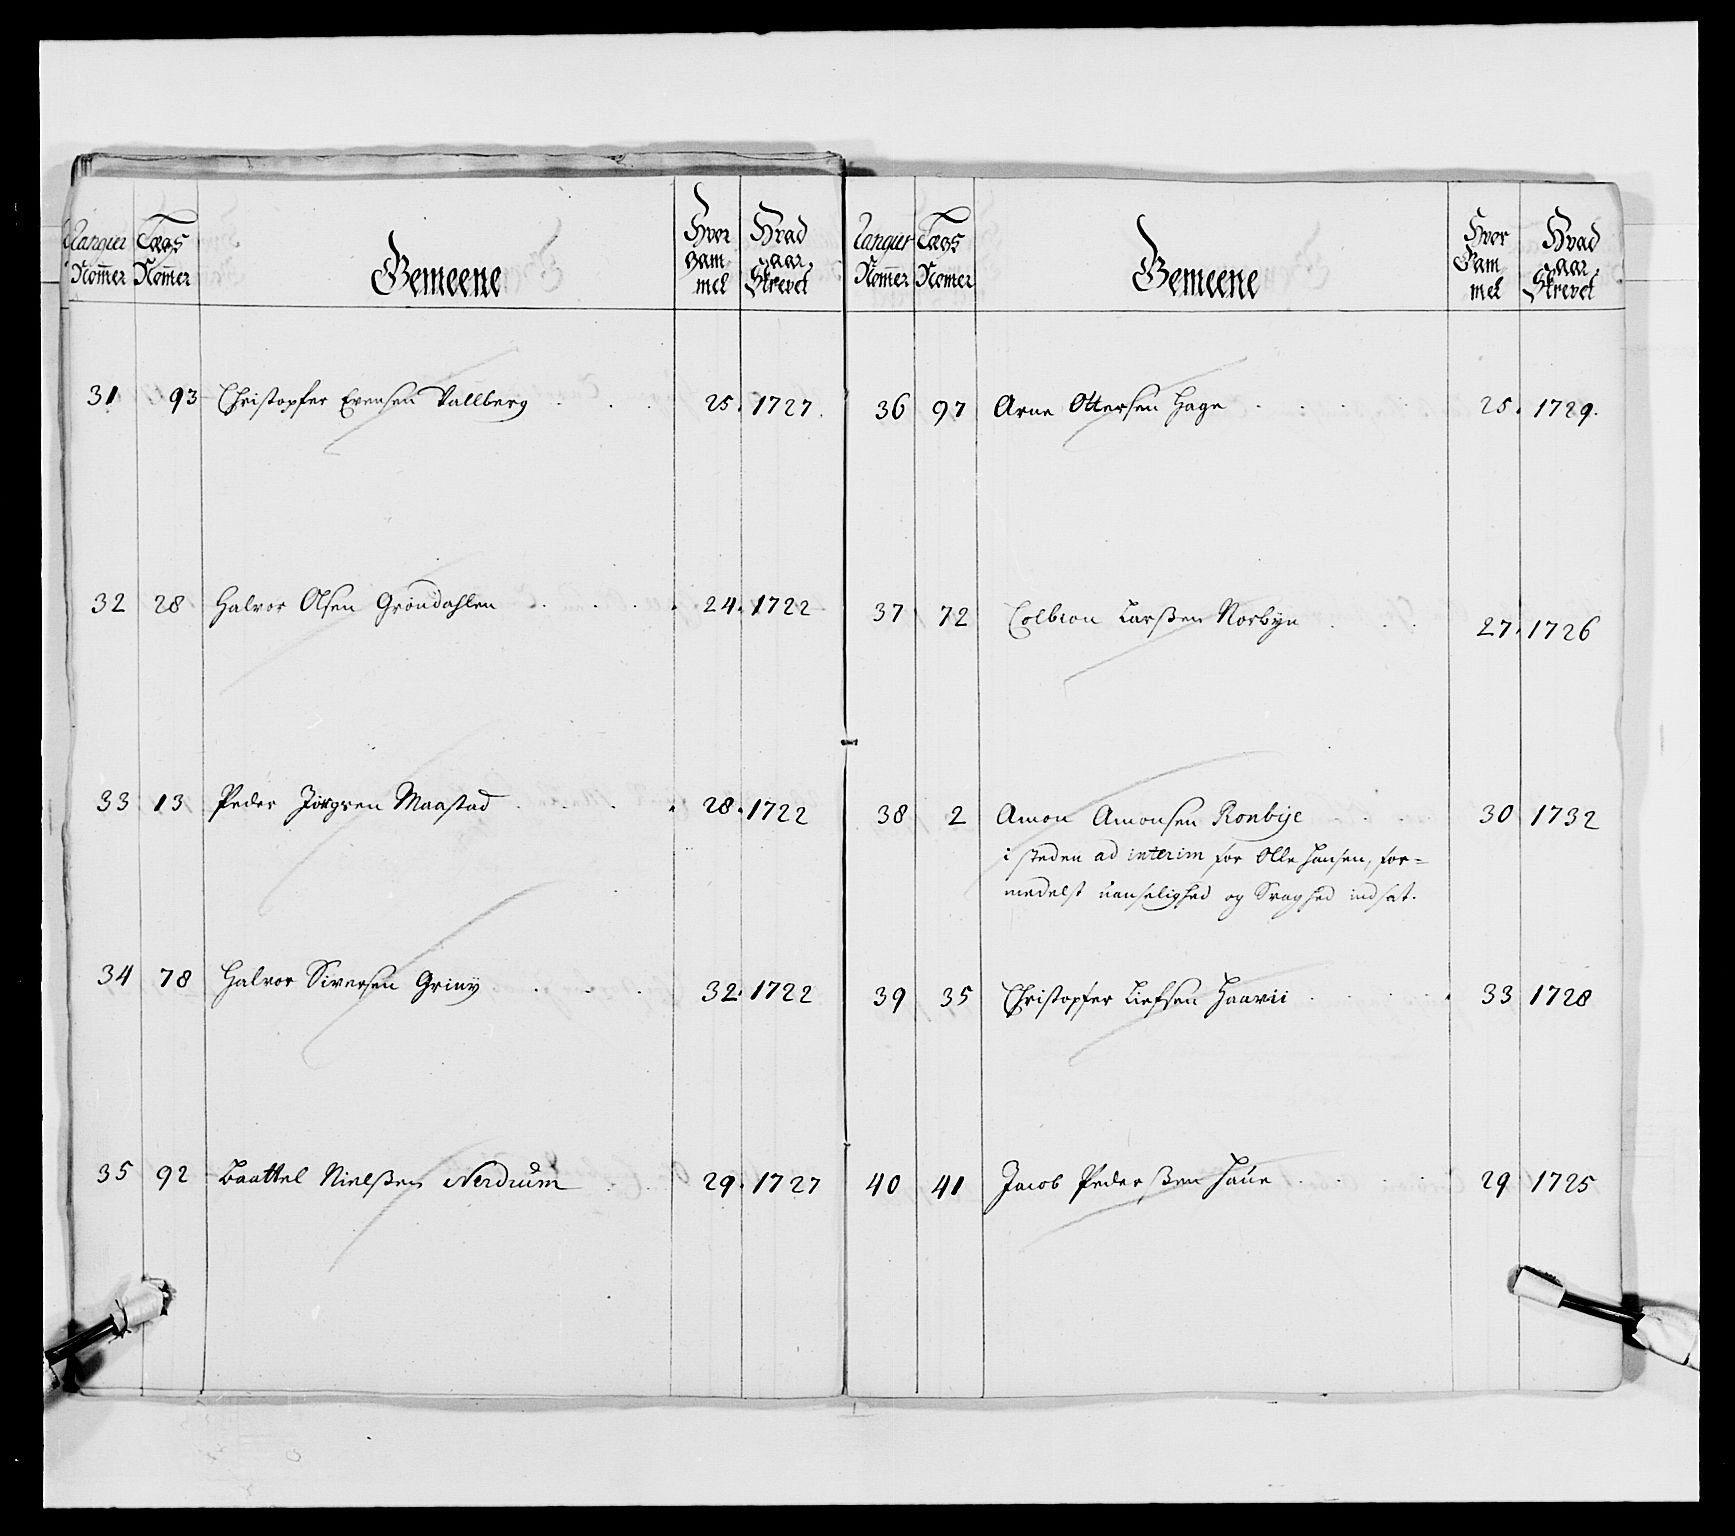 Rangier Nom̄er | Lægs Nom̄er | Gemeene | Hvor Gam mel | Hvad aar Skrevet
31 | 93 | Christopfer Evensen Vallberg | 25. | 1727.
32 | 28 | Halvor Olsen Grøndahlen | 24. | 1722
33 | 13 | Peder Jørgsen Maastad | 28. | 1722
34 | 78 | Halvor Siversen Griny | 32. | 1722
35 | 92 | Baattel Nielsen Nerdrum | 29. | 1727
Rangier Nom̄er | Lægs Nom̄er | Gemeene | Hvor Gam mel | Hvad aar Skrevet
36 | 97 | Arne Ottersen Hage | 25. | 1729.
37 | 72 | Colbion Larsen Norbye | 27. | 1726
38 | 2 | Amon Amonsen Ronbye | 30 | 1732
i steden ad interim for Olle Hansen, for=
medelst uanselighed og Svaghed indsat.
39 | 35 | Christopfer Liefsen Haavii | 33 | 1728
40 | 41 | Jacob Pedersen Haue | 29 | 1725